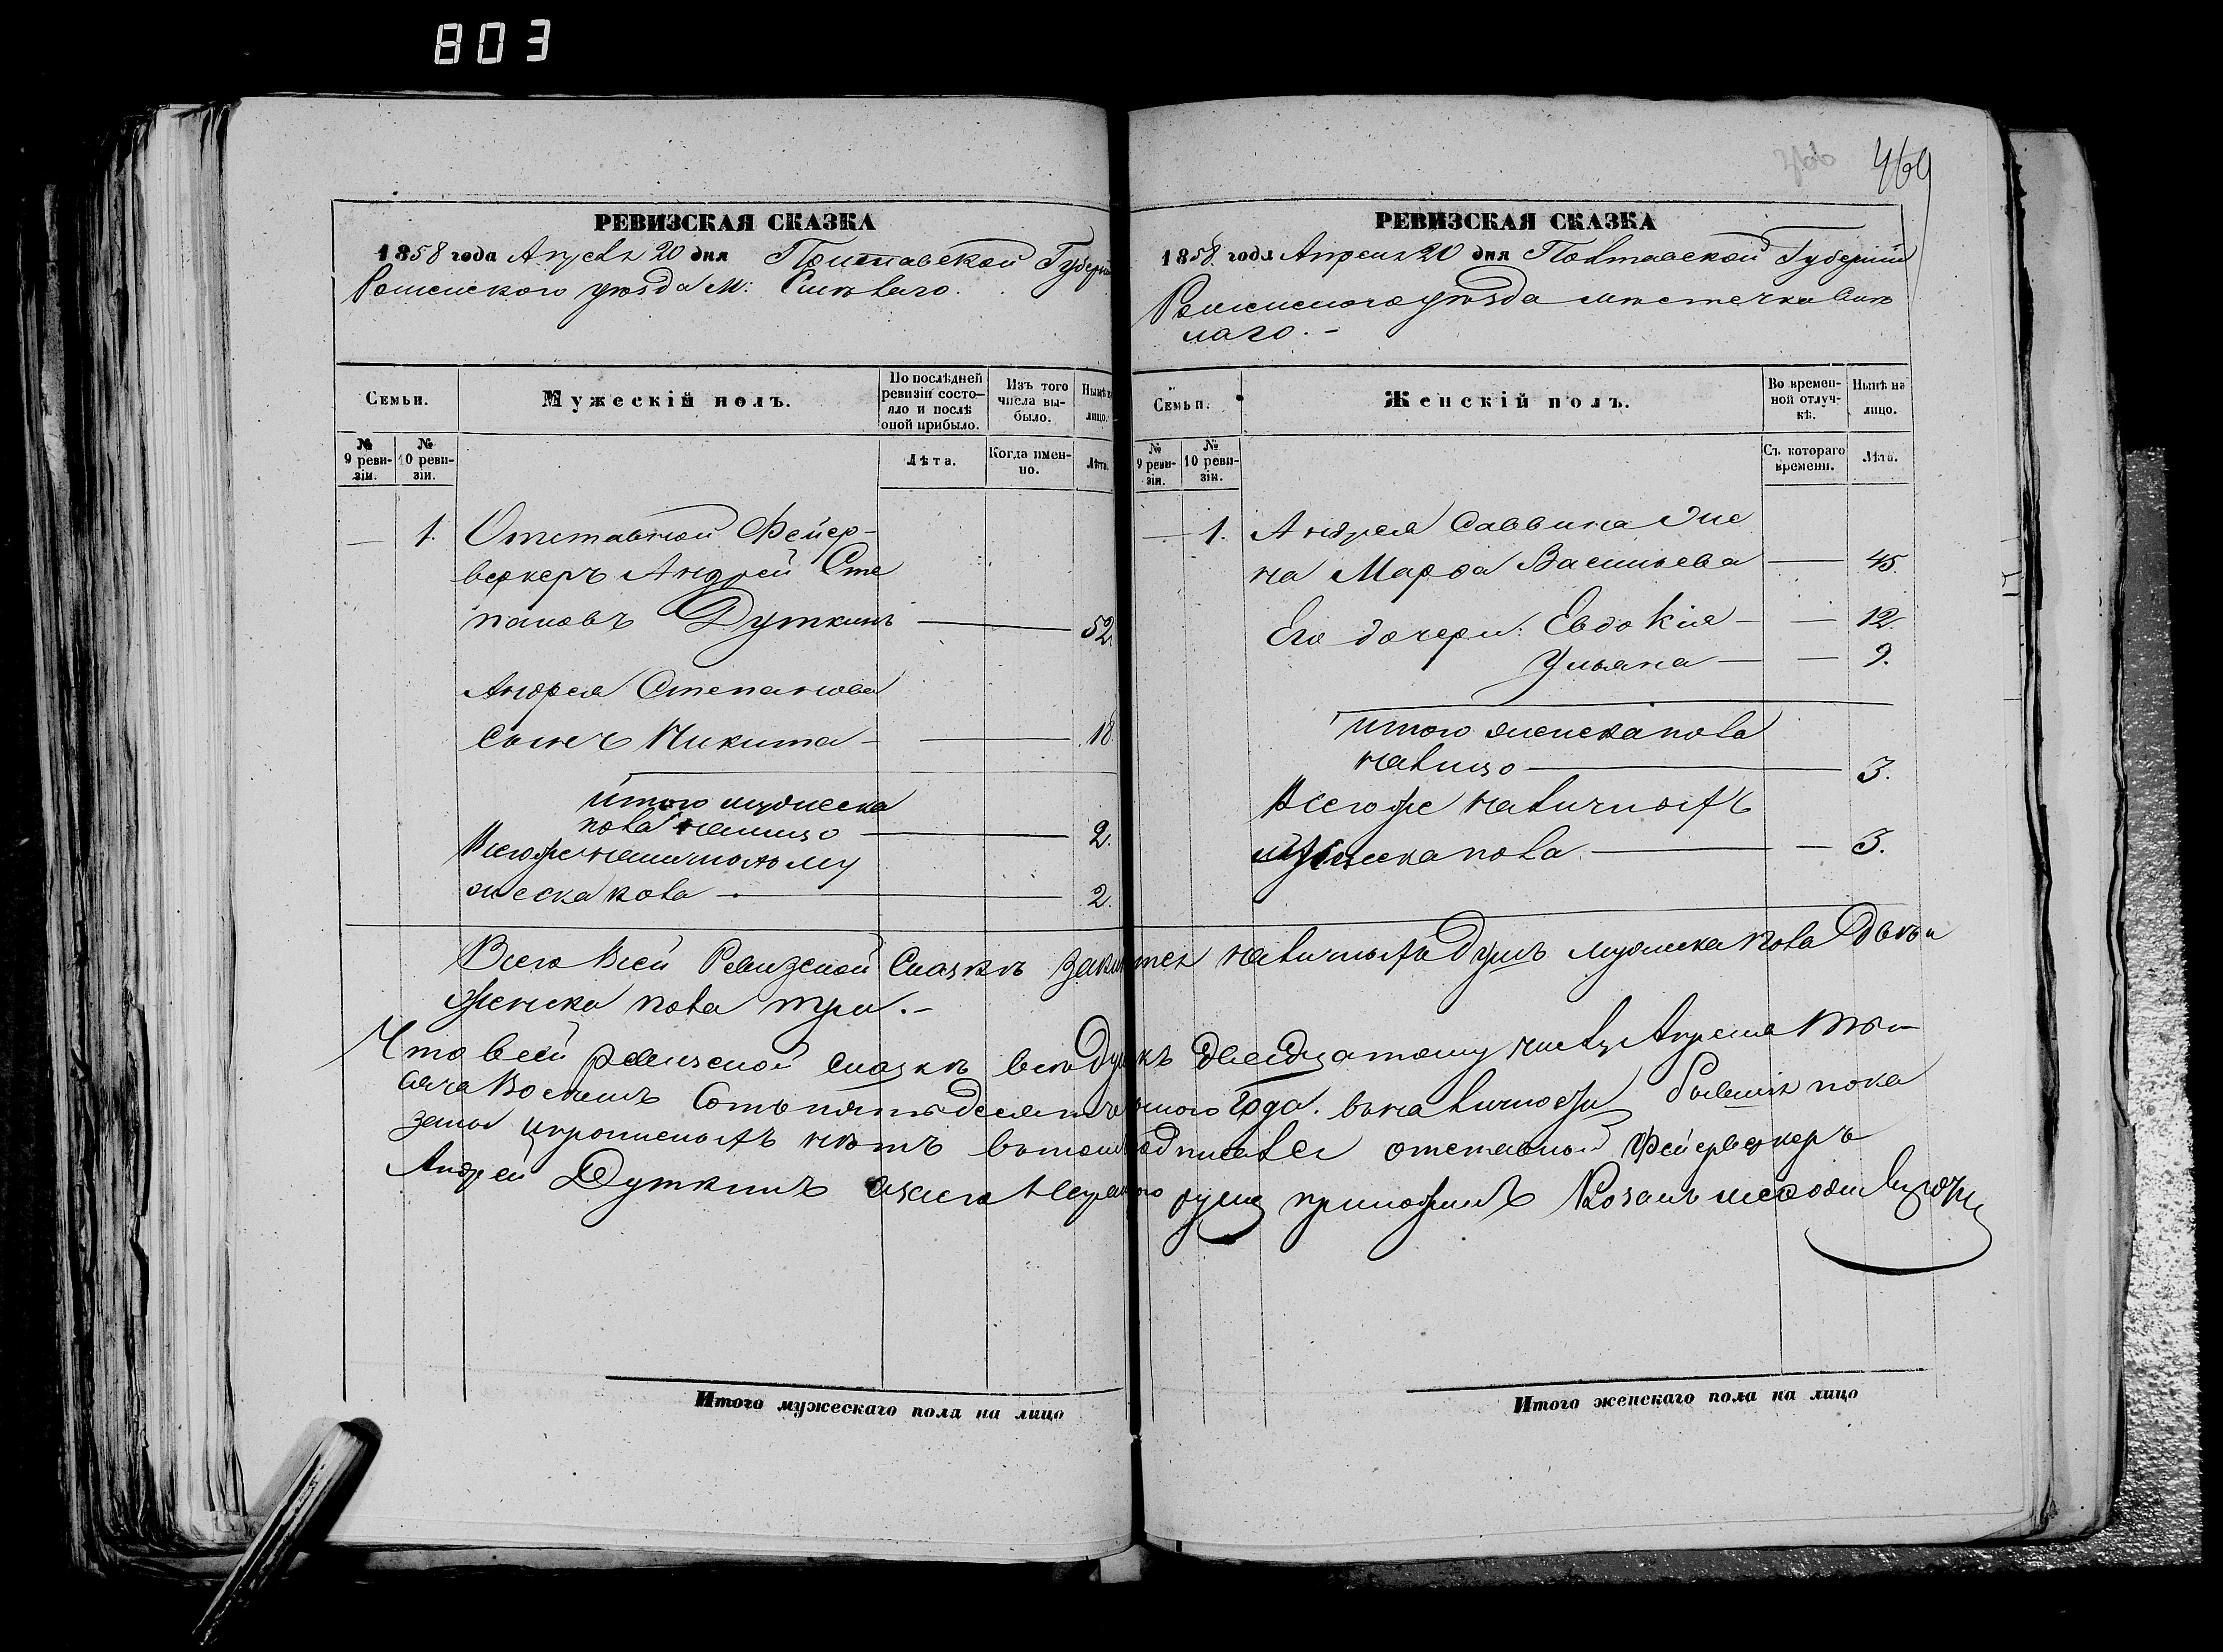 803
469
РЕВИЗСКАЯ СКАЗКА
1858 года Апреля 20 дня Полтавской Губерніи
Роменского уѣзда М: Смѣлаго.
Семьи.
Мужескій полъ.
По послѣдней ревизіи состояло и послѣ оной прибыло.
Изъ того числа выбыло.
Нынѣ на лицо.
№ 9 ревизіи.
№ 10 ревизіи.
Лѣта.
Когда именно.
Лѣта.
— 1. Отставной Фейер-
веркеръ Андрей Сте
пановъ Дуткинъ — 52.
Андрея Степанова
сынъ Никита — 18.
Итого мужеска
пола налицо — 2.
Всегоже наличностъ му
жеска пола — 2.
РЕВИЗСКАЯ СКАЗКА
1858 года Апреля 20 дня Полтавской Губерніи
Роменскаго уѣзда мѣстечка Смѣ
лаго. -
Семьи.
Женскій полъ.
Во временной отлучкѣ.
Нынѣ на лицо.
№ 9 ревизіи.
№ 10 ревизіи.
Съ котораго времени.
Лѣта.
— 1. Андрея Саввина Же
на Марфа Васильева — 45.
Его дочери: Евдокія — — 12.
Ульяна — — 9.
Итого женска пола
налицо — 3.
Всегоже наличностъ
женска пола — — 3.
Всего Всей Ревизской Сказкѣ наличностъ Душъ мужеска пола Двѣ и
женска пола три. -
Что всей ревизской сказкѣ всѣ Души къ двадцатому числу Апреля Тыся
ча Восемь Сотъ пятьдесятъ года. вналичности бывшія пока
заны ипрописныхъ нѣтъ втомъ подписался отставной Фейерверкеръ
Андрей Дуткинъ руку приложилъ Козакъ
Итого мужескаго пола на лицо
Итого женскаго пола на лицо